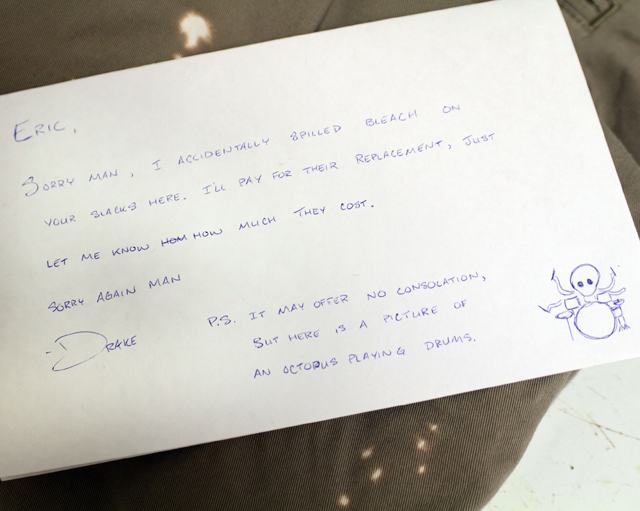 ERIC,
SORRY MAN, I ACCIDENTALLY SPILLED BLEACH ON
YOUR SLACKS HERE. I'LL PAY FOR THEIR REPLACEMENT, JUST
LET ME KNOW HOM HOW MUCH THEY COST.
SORRY AGAIN MAN
-DRAKE
P.S. IT MAY OFFER NO CONSOLATION,
BUT HERE IS A PICTURE OF
AN OCTOPUS PLAYING DRUMS.